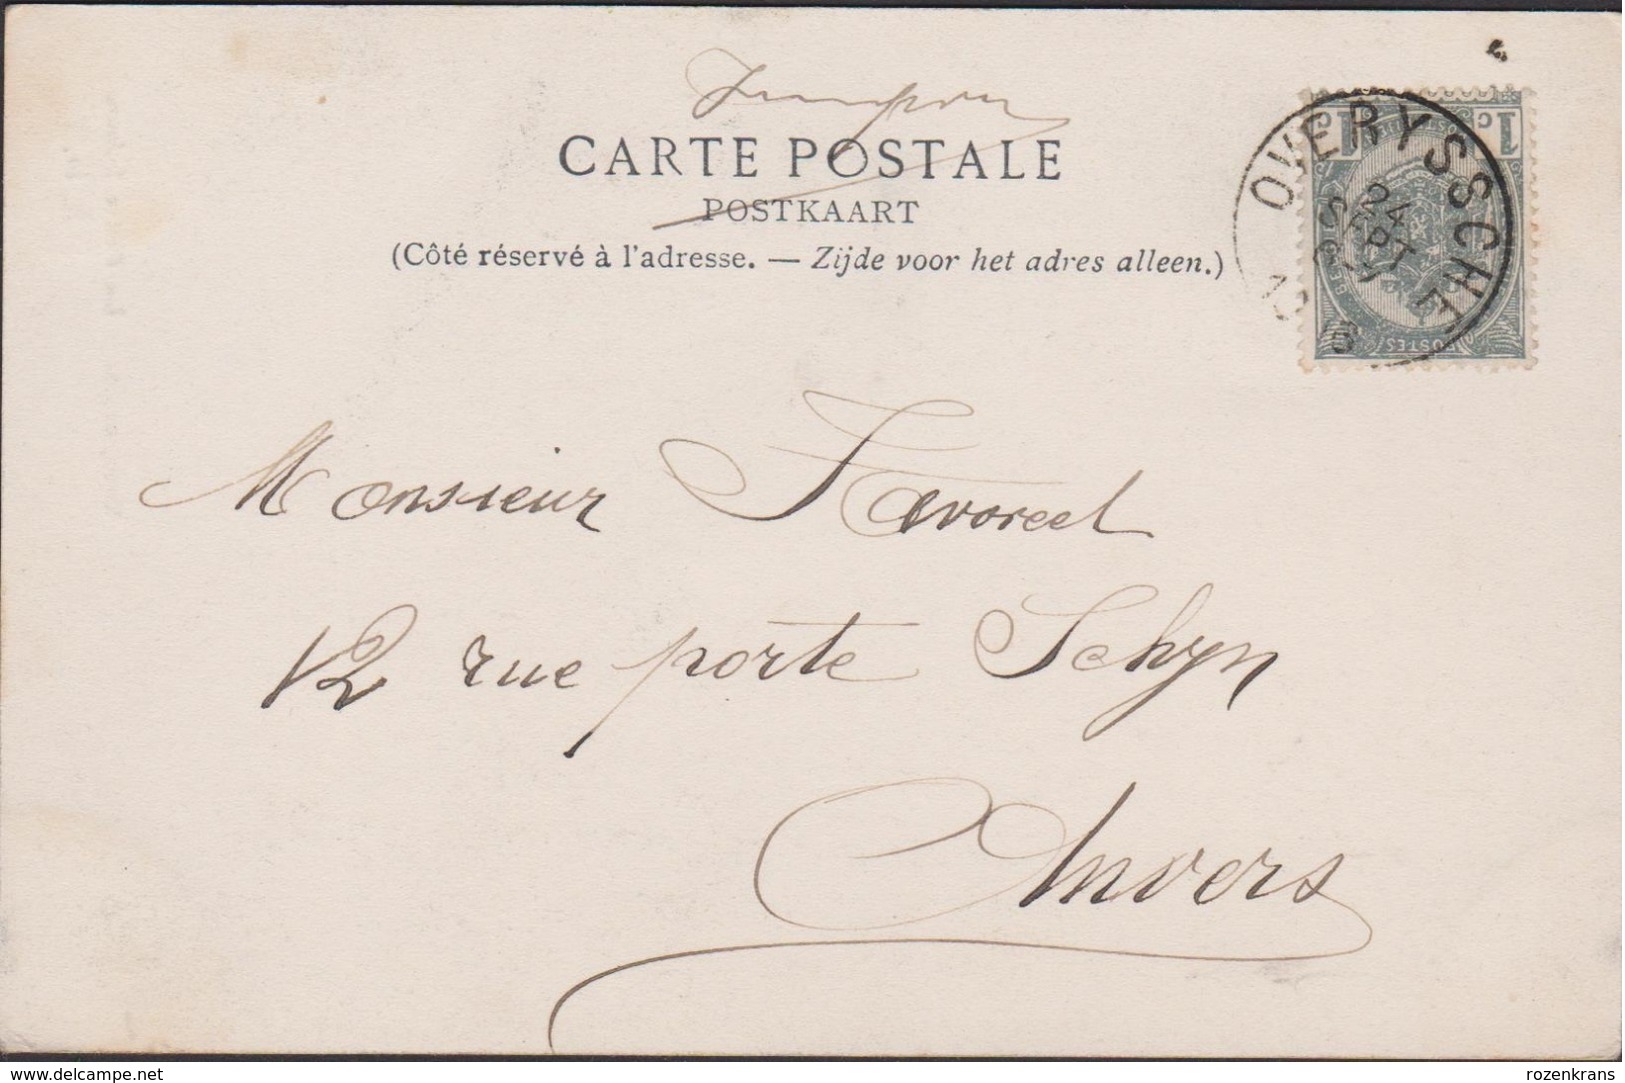 CARTE POSTALE
POSTKAART
(Côté réservé à l'adresse. — Zijde voor het adres alleen.)
OVERYSSCHE
24
SEPT
1c
POSTES
Monsieur Favoreel
12 rue porte Schyn
Anvers
www.delcampe.net
rozenkrans